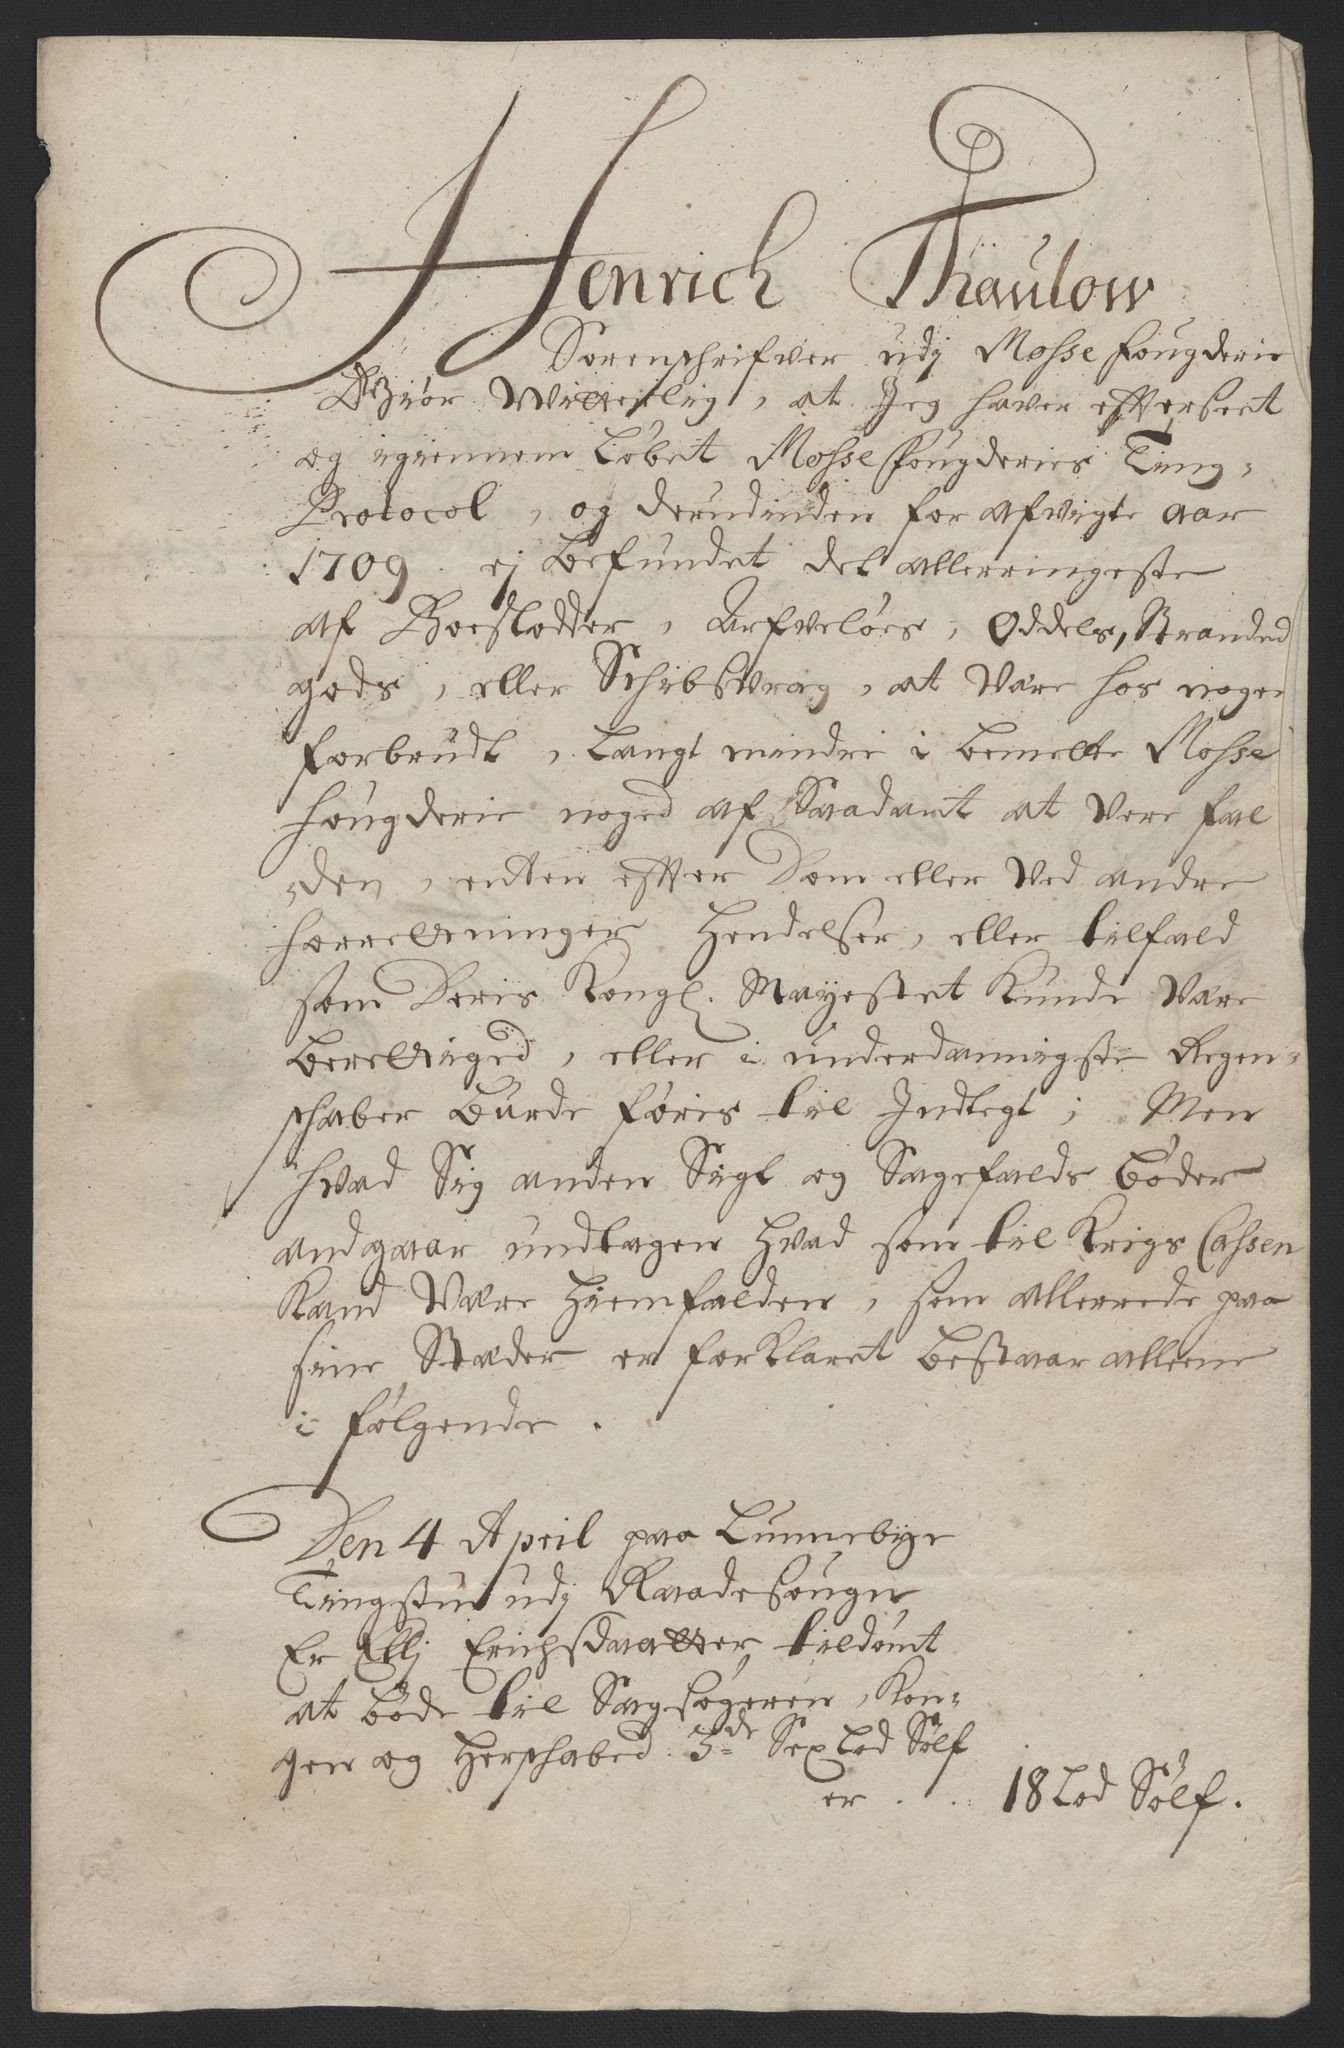 Henrich Thaulow
Sorenschrifver udj Mosse fougderie
Giør Witterlig, at Jeg haver efterseet
og igiennem Løbet Mosse Fougderies Ting-
Protocol, og derudinden for afvigte aar
1709. ej befundet det allerringeste
af Boeslodder, Arfveløes, Oddels, Stranded
gods, eller Schibsvrag, at være hos noger
forbrudt, Langt mindre i bemelte Mosse
fougderie noged af Saadant at vere fal
den, enten efter Dom eller ved andre
forretninger Hendelser, eller tilfald
som Deris Kongl. Mayestet Kunde være
berettiged, eller i underdannigste Regen-
schaber burde føris til Indtegt; Men
hvad Sig anden Sigt og Sagefalds bøder
andgaar undtagen hvad som til Krigs Cassen
Kand være hiemfalden, som allerrede paa
sine Stæder er forklaret bestaar alleene
i følgende.
Den 4 April paa Lunnebÿe
Tingstue udj Raade Sougn
Er Ellj Erichsdaatter tildømt
at bøde til Sagsøgeren, Kon-
gen og Herschabed 3de Sex Lod Sølf
er . . 18 Lod Sølf.